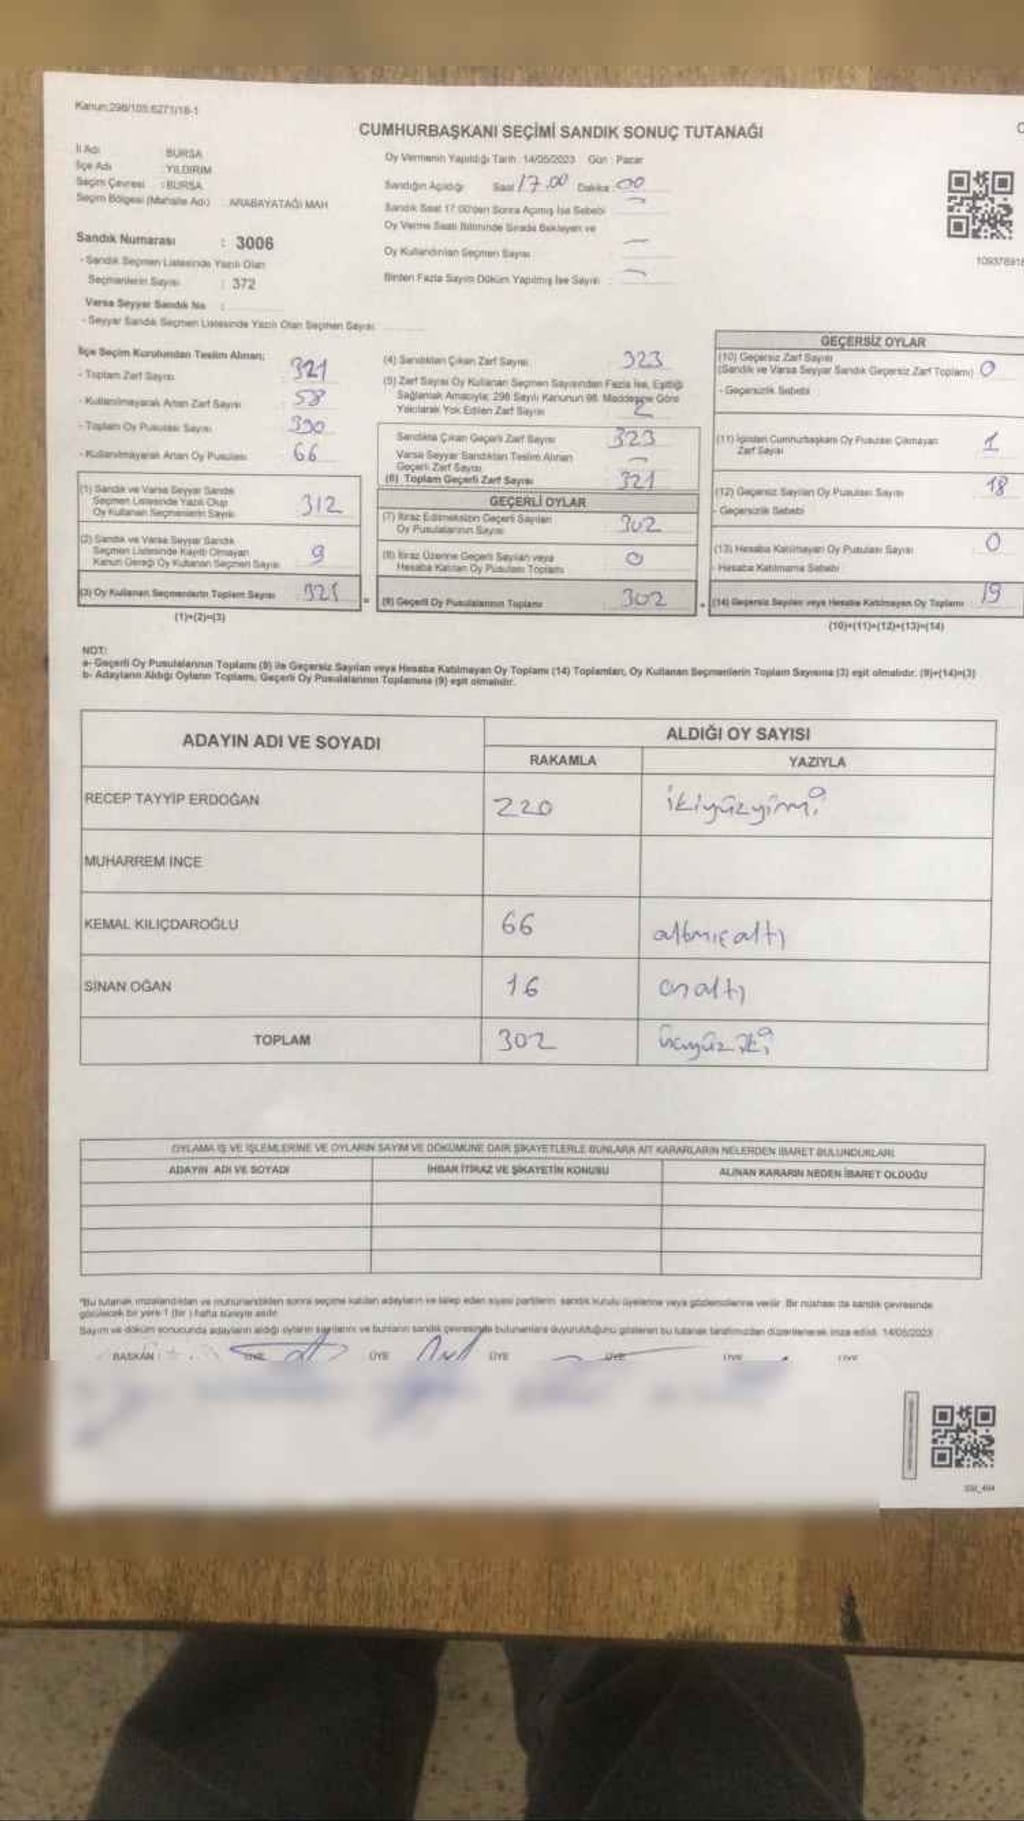 Kanun:298/105.6271/18-1
CUMHURBAŞKANI SEÇİMİ SANDIK SONUÇ TUTANAĞI
İl Adı BURSA
İlçe Adı YILDIRIM
Seçim Çevresi : BURSA
Seçim Bölgesi (Mahalle Adı) : ARABAYATAĞI MAH
Sandık Numarası : 3006
- Sandık Seçmen Listesinde Yazılı Olan
Seçmenlerin Sayısı : 372
Varsa Seyyar Sandık No :
- Seyyar Sandık Seçmen Listesinde Yazılı Olan Seçmen Sayısı
Oy Vermenin Yapıldığı Tarih : 14/05/2023 Gün : Pazar
Sandığın Açıldığı Saat 17.00 Dakika : 00
Sandık Saat 17:00'den Sonra Açmış İse Sebebi
Oy Verme Saati Bitiminde Sırada Bekleyen ve
Oy Kullandırılan Seçmen Sayısı
Birden Fazla Sayım Döküm Yapılmış İse Sayısı
109376918
İlçe Seçim Kurulundan Teslim Alınan;
- Toplam Zarf Sayısı
- Kullanılmayarak Artan Zarf Sayısı 58
- Toplam Oy Pusulası Sayısı 390
- Kullanılmayarak Artan Oy Pusulası 66
(1) Sandık ve Varsa Seyyar Sandık
Seçmen Listesinde Yazılı Olup
Oy Kullanan Seçmenlerin Sayısı 312
(2) Sandık ve Varsa Seyyar Sandık
Seçmen Listesinde Kayıtlı Olmayan
Kanun Gereği Oy Kullanan Seçmen Sayısı 9
(3) Oy Kullanan Seçmenlerin Toplam Sayısı 321
(1)+(2)=(3)
(4) Sandıktan Çıkan Zarf Sayısı 323
(5) Zarf Sayısı Oy Kullanan Seçmen Sayısından Fazla İse, Eşitliği
Sağlamak Amacıyla; 298 Sayılı Kanunun 98. Maddesine Göre
Yakılarak Yok Edilen Zarf Sayısı 2
Sandıkta Çıkan Geçerli Zarf Sayısı 323
Varsa Seyyar Sandıktan Teslim Alınan
Geçerli Zarf Sayısı
(6) Toplam Geçerli Zarf Sayısı 321
GEÇERLİ OYLAR
(7) İtiraz Edilmeksizin Geçerli Sayılan
Oy Pusulalarının Sayısı 302
(8) İtiraz Üzerine Geçerli Sayılan veya
Hesaba Katılan Oy Pusulası Toplamı 0
(9) Geçerli Oy Pusulalarının Toplamı 302
GEÇERSİZ OYLAR
(10) Geçersiz Zarf Sayısı
(Sandık ve Varsa Seyyar Sandık Geçersiz Zarf Toplamı) 0
- Geçersizlik Sebebi
(11) İçinden Cumhurbaşkanı Oy Pusulası Çıkmayan
Zarf Sayısı 1
(12) Geçersiz Sayılan Oy Pusulası Sayısı 18
- Geçersizlik Sebebi
(13) Hesaba Katılmayan Oy Pusulası Sayısı 0
- Hesaba Katılmama Sebebi
(14) Geçersiz Sayılan veya Hesaba Katılmayan Oy Toplamı 19
(10)+(11)+(12)+(13)=(14)
NOT:
a- Geçerli Oy Pusulalarının Toplamı (9) ile Geçersiz Sayılan veya Hesaba Katılmayan Oy Toplamı (14) Toplamları, Oy Kullanan Seçmenlerin Toplam Sayısına (3) eşit olmalıdır. (9)+(14)=(3)
b- Adayların Aldığı Oyların Toplamı, Geçerli Oy Pusulalarının Toplamına (9) eşit olmalıdır.
ADAYIN ADI VE SOYADI ALDIĞI OY SAYISI
RAKAMLA YAZIYLA
RECEP TAYYİP ERDOĞAN 220 ikiyüzyirmi
MUHARREM İNCE
KEMAL KILIÇDAROĞLU 66 altmışaltı
SİNAN OĞAN 16 onaltı
TOPLAM 302 üçyüziki
OYLAMA İŞ VE İŞLEMLERİNE VE OYLARIN SAYIM VE DÖKÜMÜNE DAİR ŞİKAYETLERLE BUNLARA AİT KARARLARIN NELERDEN İBARET BULUNDUKLARI
ADAYIN ADI VE SOYADI İHBAR İTİRAZ VE ŞİKAYETİN KONUSU ALINAN KARARIN NEDEN İBARET OLDUĞU
*Bu tutanak imzalandıktan ve mühürlendikten sonra seçime katılan adayların ve talep eden siyasi partilerin sandık kurulu üyelerine veya gözlemcilerine verilir. Bir nüshası da sandık çevresinde
görülecek bir yere 1 (bir ) hafta süreyle asılır.
Sayım ve döküm sonucunda adayların aldığı oyların sayılarını ve bunların sandık çevresinde bulunanlara duyurulduğunu gösteren bu tutanak tarafımızdan düzenlenerek imza edildi. 14/05/2023
BAŞKAN ÜYE ÜYE ÜYE ÜYE ÜYE ÜYE